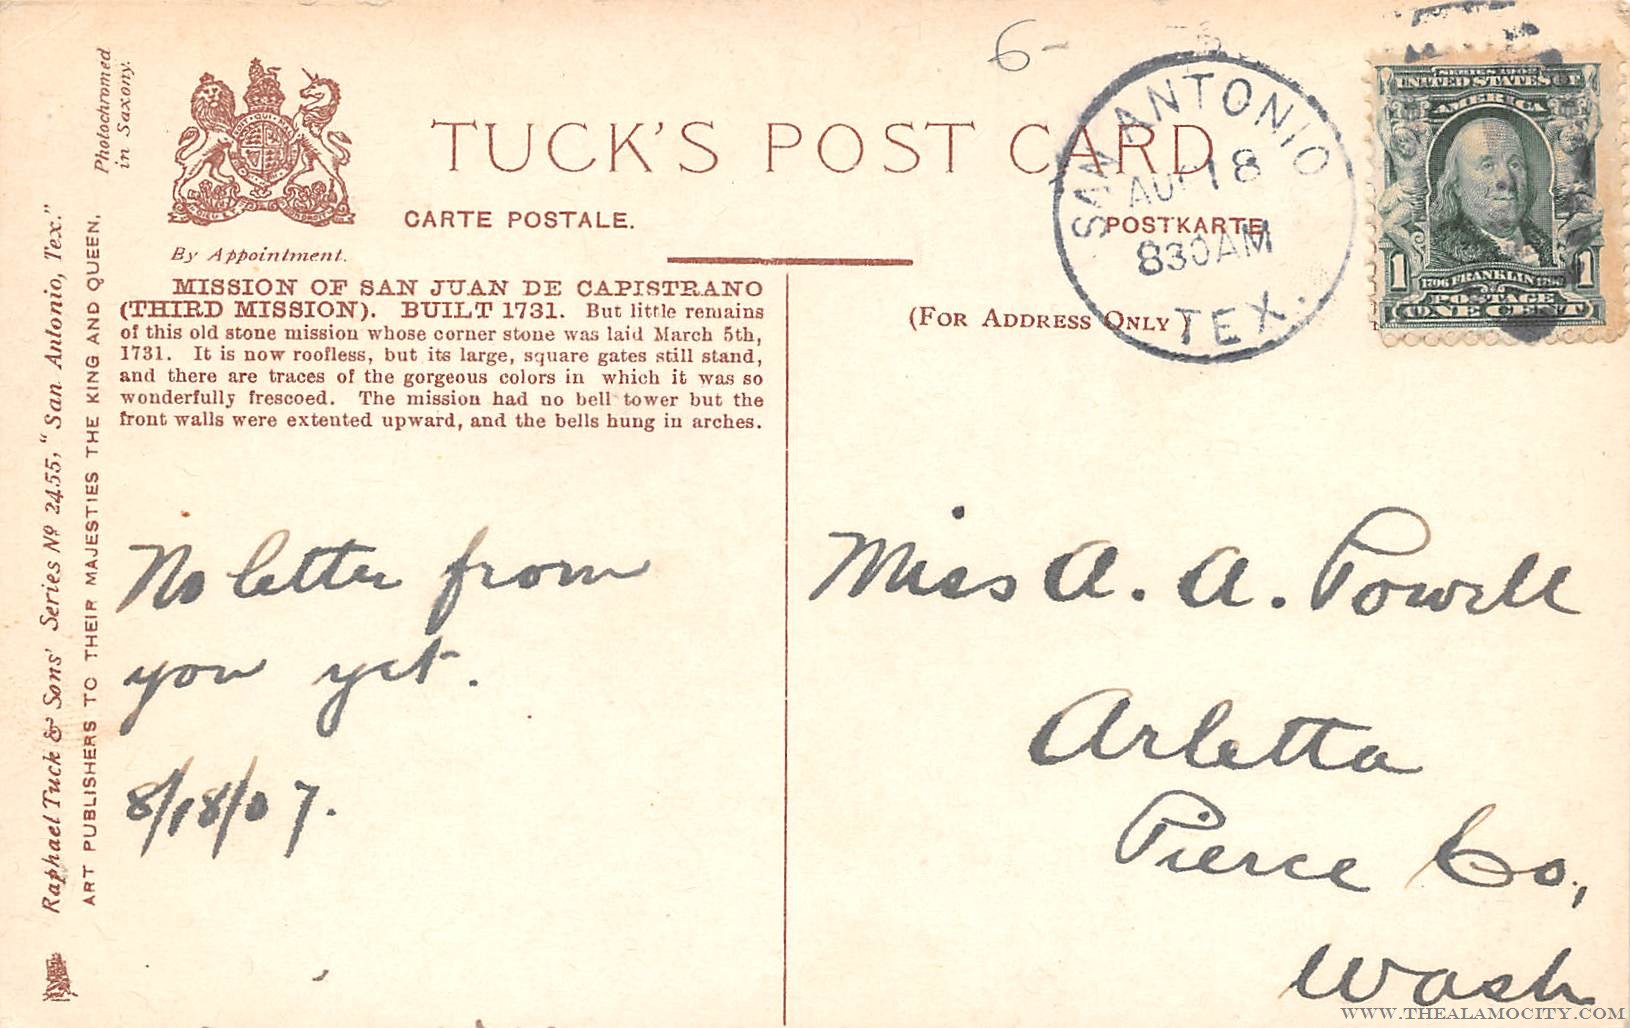 6-
Photochromed
in Saxony.
TUCK'S POST CARD
CARTE POSTALE.
POSTKARTE
By Appointment.
MISSION OF SAN JUAN DE CAPISTRANO
(THIRD MISSION). BUILT 1731. But little remains
of this old stone mission whose corner stone was laid March 5th,
1731. It is now roofless, but its large, square gates still stand,
and there are traces of the gorgeous colors in which it was so
wonderfully frescoed. The mission had no bell tower but the
front walls were extented upward, and the bells hung in arches.
Raphael Tuck & Sons' Series Nº 2455, "San Antonio, Tex."
ART PUBLISHERS TO THEIR MAJESTIES THE KING AND QUEEN.
No letter from
you yet.
8/18/07.
(FOR ADDRESS ONLY)
SAN ANTONIO
AUG 18
830AM
TEX.
SERIES 1902
UNITED STATES OF
AMERICA
1 1
1706 FRANKLIN 1790
POSTAGE
ONE CENT
Miss A. A. Powell
Arletta
Pierce Co,
Wash
WWW.THEALAMOCITY.COM